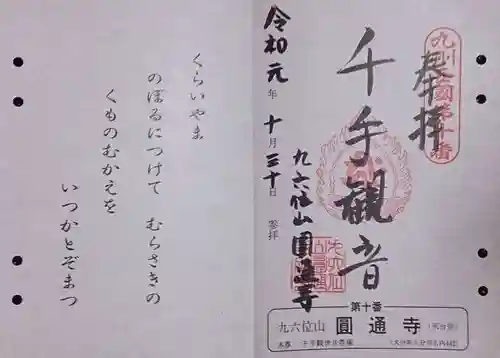 奉拝
九州西国第十番
千手観音
九六位山圓通寺
令和元年十月三十日参拝
第十番
九六位山 圓通寺
くらいやま
のぼるにつけて むらさきの
くものむかえを
いつかとぞまつ